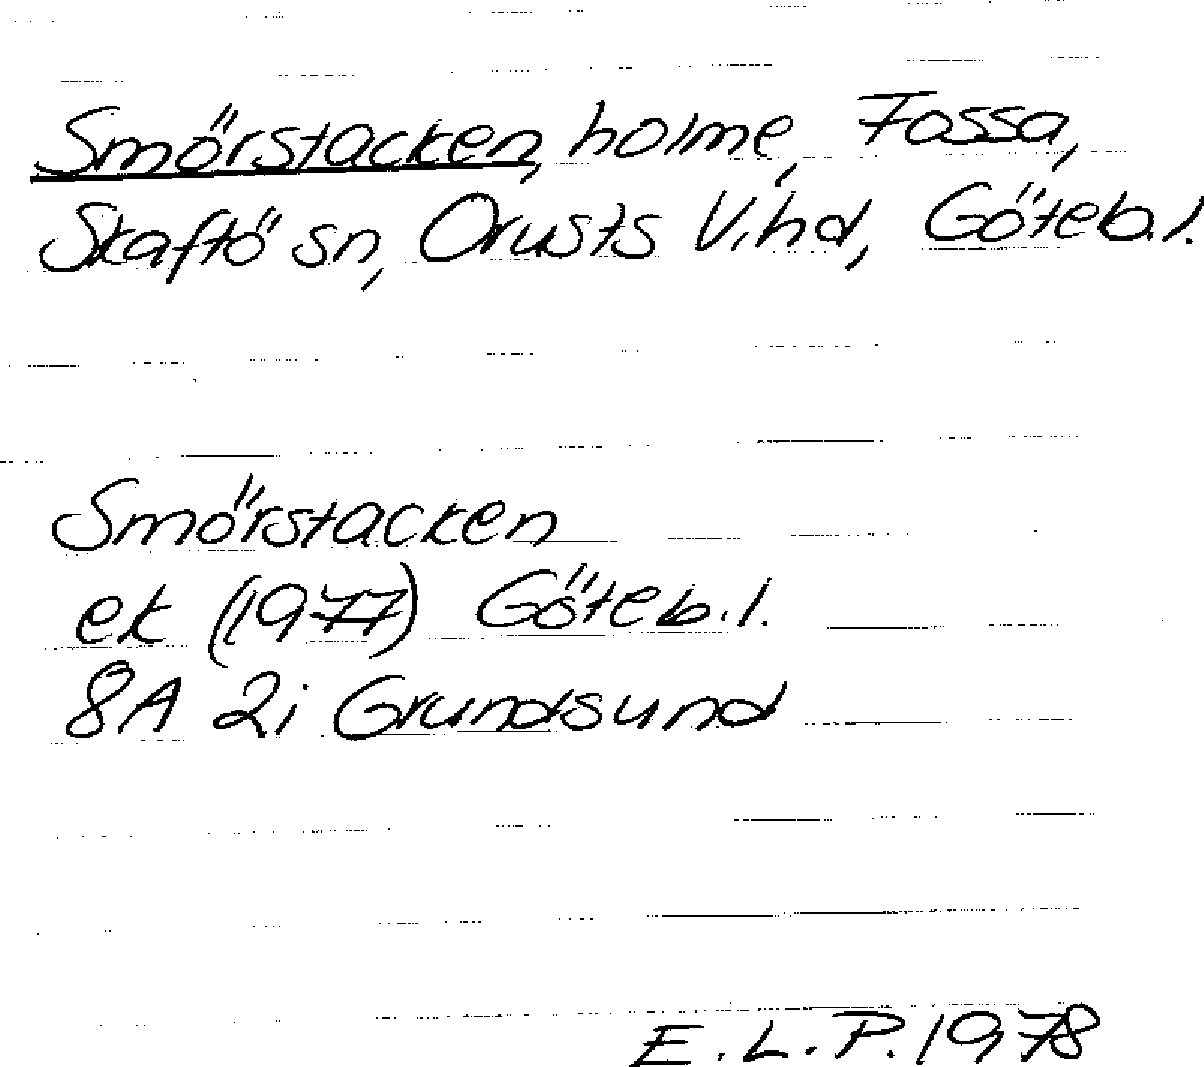 Smörstacken, holme, Fossa,
Skaftö sn, Orusts V.hd, Göteb.l.
Smörstacken
ek (1977) Göteb.l.
8A 2i Grundsund
E.L.P. 1978